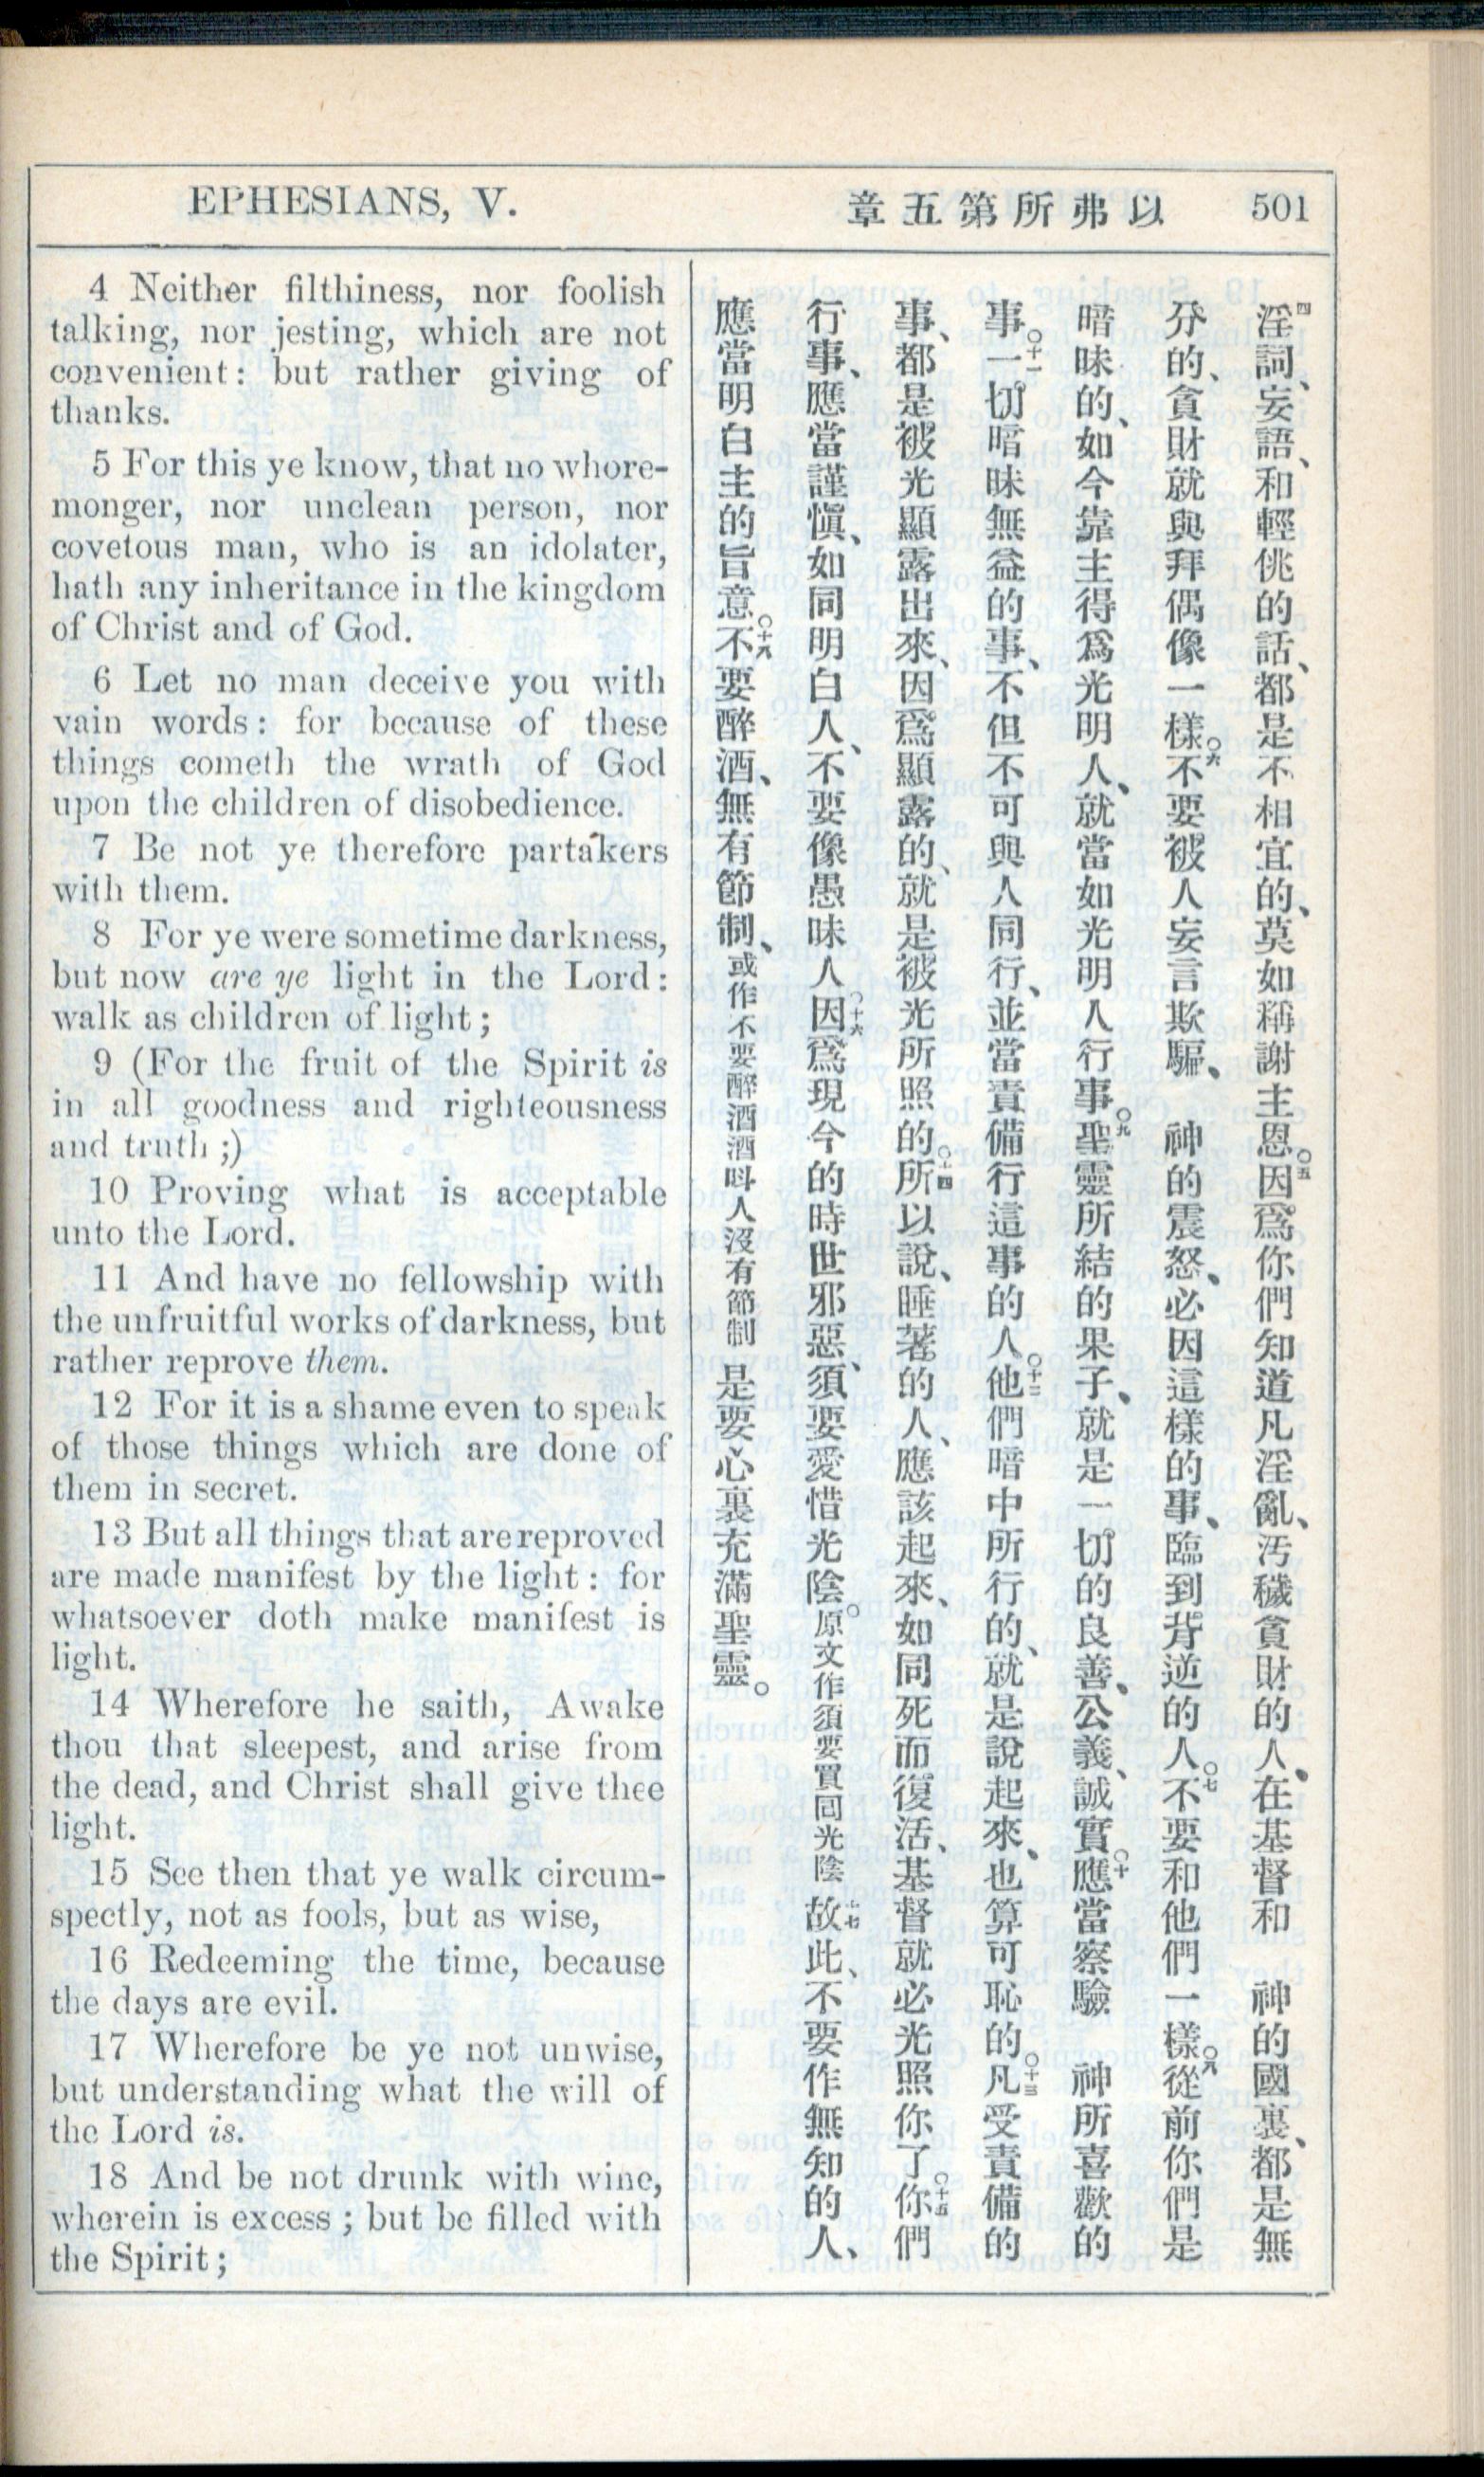 EPHESIANS, V.
章五第所弗以
501
4 Neither filthiness, nor foolish
talking, nor jesting, which are not
convenient: but rather giving of
thanks.
5 For this ye know, that no whore-
monger, nor unclean person, nor
covetous man, who is an idolater,
hath any inheritance in the kingdom
of Christ and of God.
6 Let no man deceive you with
vain words: for because of these
things cometh the wrath of God
upon the children of disobedience.
7 Be not ye therefore partakers
with them.
8 For ye were sometime darkness,
but now are ye light in the Lord:
walk as children of light;
9 (For the fruit of the Spirit is
in all goodness and righteousness
and truth;)
10 Proving what is acceptable
unto the Lord.
11 And have no fellowship with
the unfruitful works of darkness, but
rather reprove them.
12 For it is a shame even to speak
of those things which are done of
them in secret.
13 But all things that are reproved
are made manifest by the light: for
whatsoever doth make manifest is
light.
14 Wherefore he saith, Awake
thou that sleepest, and arise from
the dead, and Christ shall give thee
light.
15 See then that ye walk circum-
spectly, not as fools, but as wise,
16 Redeeming the time, because
the days are evil.
17 Wherefore be ye not unwise,
but understanding what the will of
the Lord is.
18 And be not drunk with wine,
wherein is excess; but be filled with
the Spirit;
四淫詞、妄語、和輕佻的話、都是不相宜的、莫如稱謝主恩。五因爲你們知道凡淫亂、汚穢貪財的人、在基督和 神的國裏、都是無
分的、貪財就與拜偶像一樣。六不要被人妄言欺騙、 神的震怒、必因這樣的事、臨到背逆的人。七不要和他們一樣。八從前你們是
暗昧的、如今靠主得爲光明人、就當如光明人行事。九聖靈所結的果子、就是一切的良善、公義、誠實。十應當察驗 神所喜歡的
事。十一一切暗昧無益的事、不但不可與人同行、並當責備行這事的人。十二他們暗中所行的、就是說起來、也算可恥的。十三凡受責備的
事、都是被光顯露出來、因爲顯露的、就是被光所照的。十四所以說、睡著的人、應該起來、如同死而復活、基督就必光照你了。十五你們
行事、應當謹愼、如同明白人、不要像愚昧人。十六因爲現今的時世邪惡、須要愛惜光陰。原文作須要買回光陰 十七故此、不要作無知的人、
應當明白主的旨意。十八不要醉酒、無有節制、或作不要醉酒酒呌人沒有節制 是要心裏充滿聖靈。